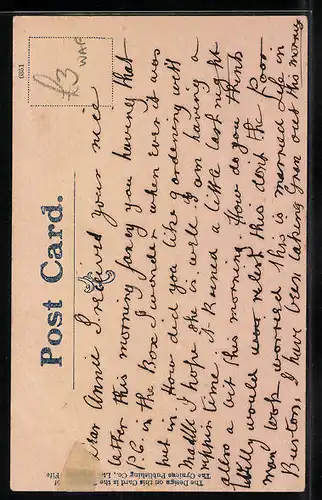 6351
£3
WAR
Post Card.
Dear Annie I received your nice
letter this morning fancy you having that
P.C. in the Box I wonder when ever it was
put in. How did you like gardening with
Madle I hope she is well I am having a
rippin time it Rained a little last night
also a bit this morning. How do you think
Willy would relish this dont the Poor
man look worried this is married Life in
Burton, I have been taking Gran out this morning
The Design on this Card is the
The Cynicus Publishing Co., Ld.
Fife